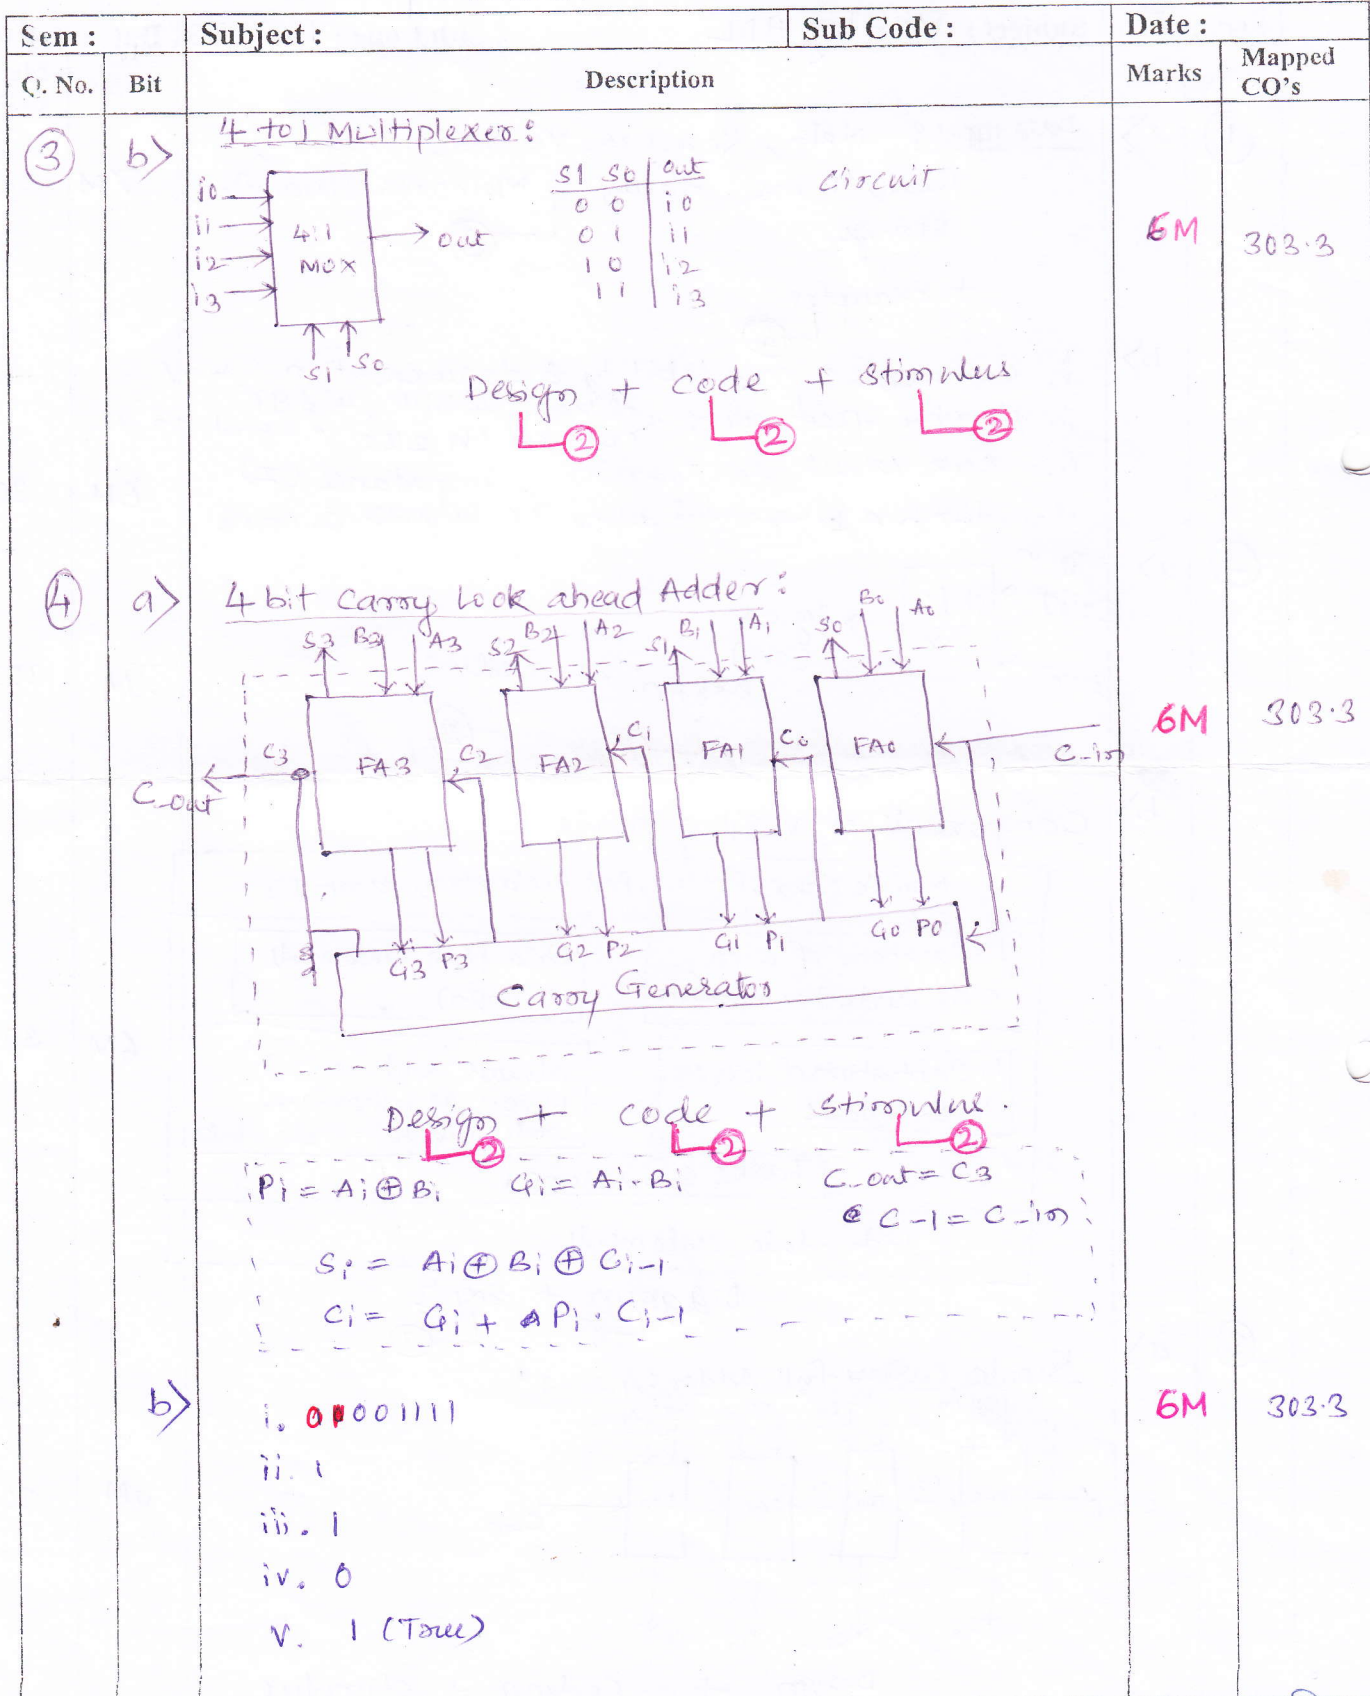 Sem : Subject : Sub Code : Date :
Q. No. Bit Description Marks Mapped CO's
3 b) 4 to 1 Multiplexer:
i0 i1 i2 i3
4:1 MUX
out
S1 S0
S1 S0 out
0 0 i0
0 1 i1
1 0 i2
1 1 i3
Circuit
6M 303.3
Design + code + stimulus
2 2 2
4 a) 4 bit Carry Look ahead Adder:
S3 B3 A3 S2 B2 A2 S1 B1 A1 S0 B0 A0
C3 FA3 C2 FA2 C1 FA1 C0 FA0 C_in
C_out
6M 303.3
G3 P3 G2 P2 G1 P1 G0 P0
Carry Generator
Design + code + stimulus.
2 2 2
Pi = Ai ⊕ Bi Gi = Ai · Bi C_out = C3
C-1 = C_in
Si = Ai ⊕ Bi ⊕ Ci-1
Ci = Gi + Pi · Ci-1
b) 6M 303.3
i. 01001111
ii. 1
iii. 1
iv. 0
v. 1 (True)